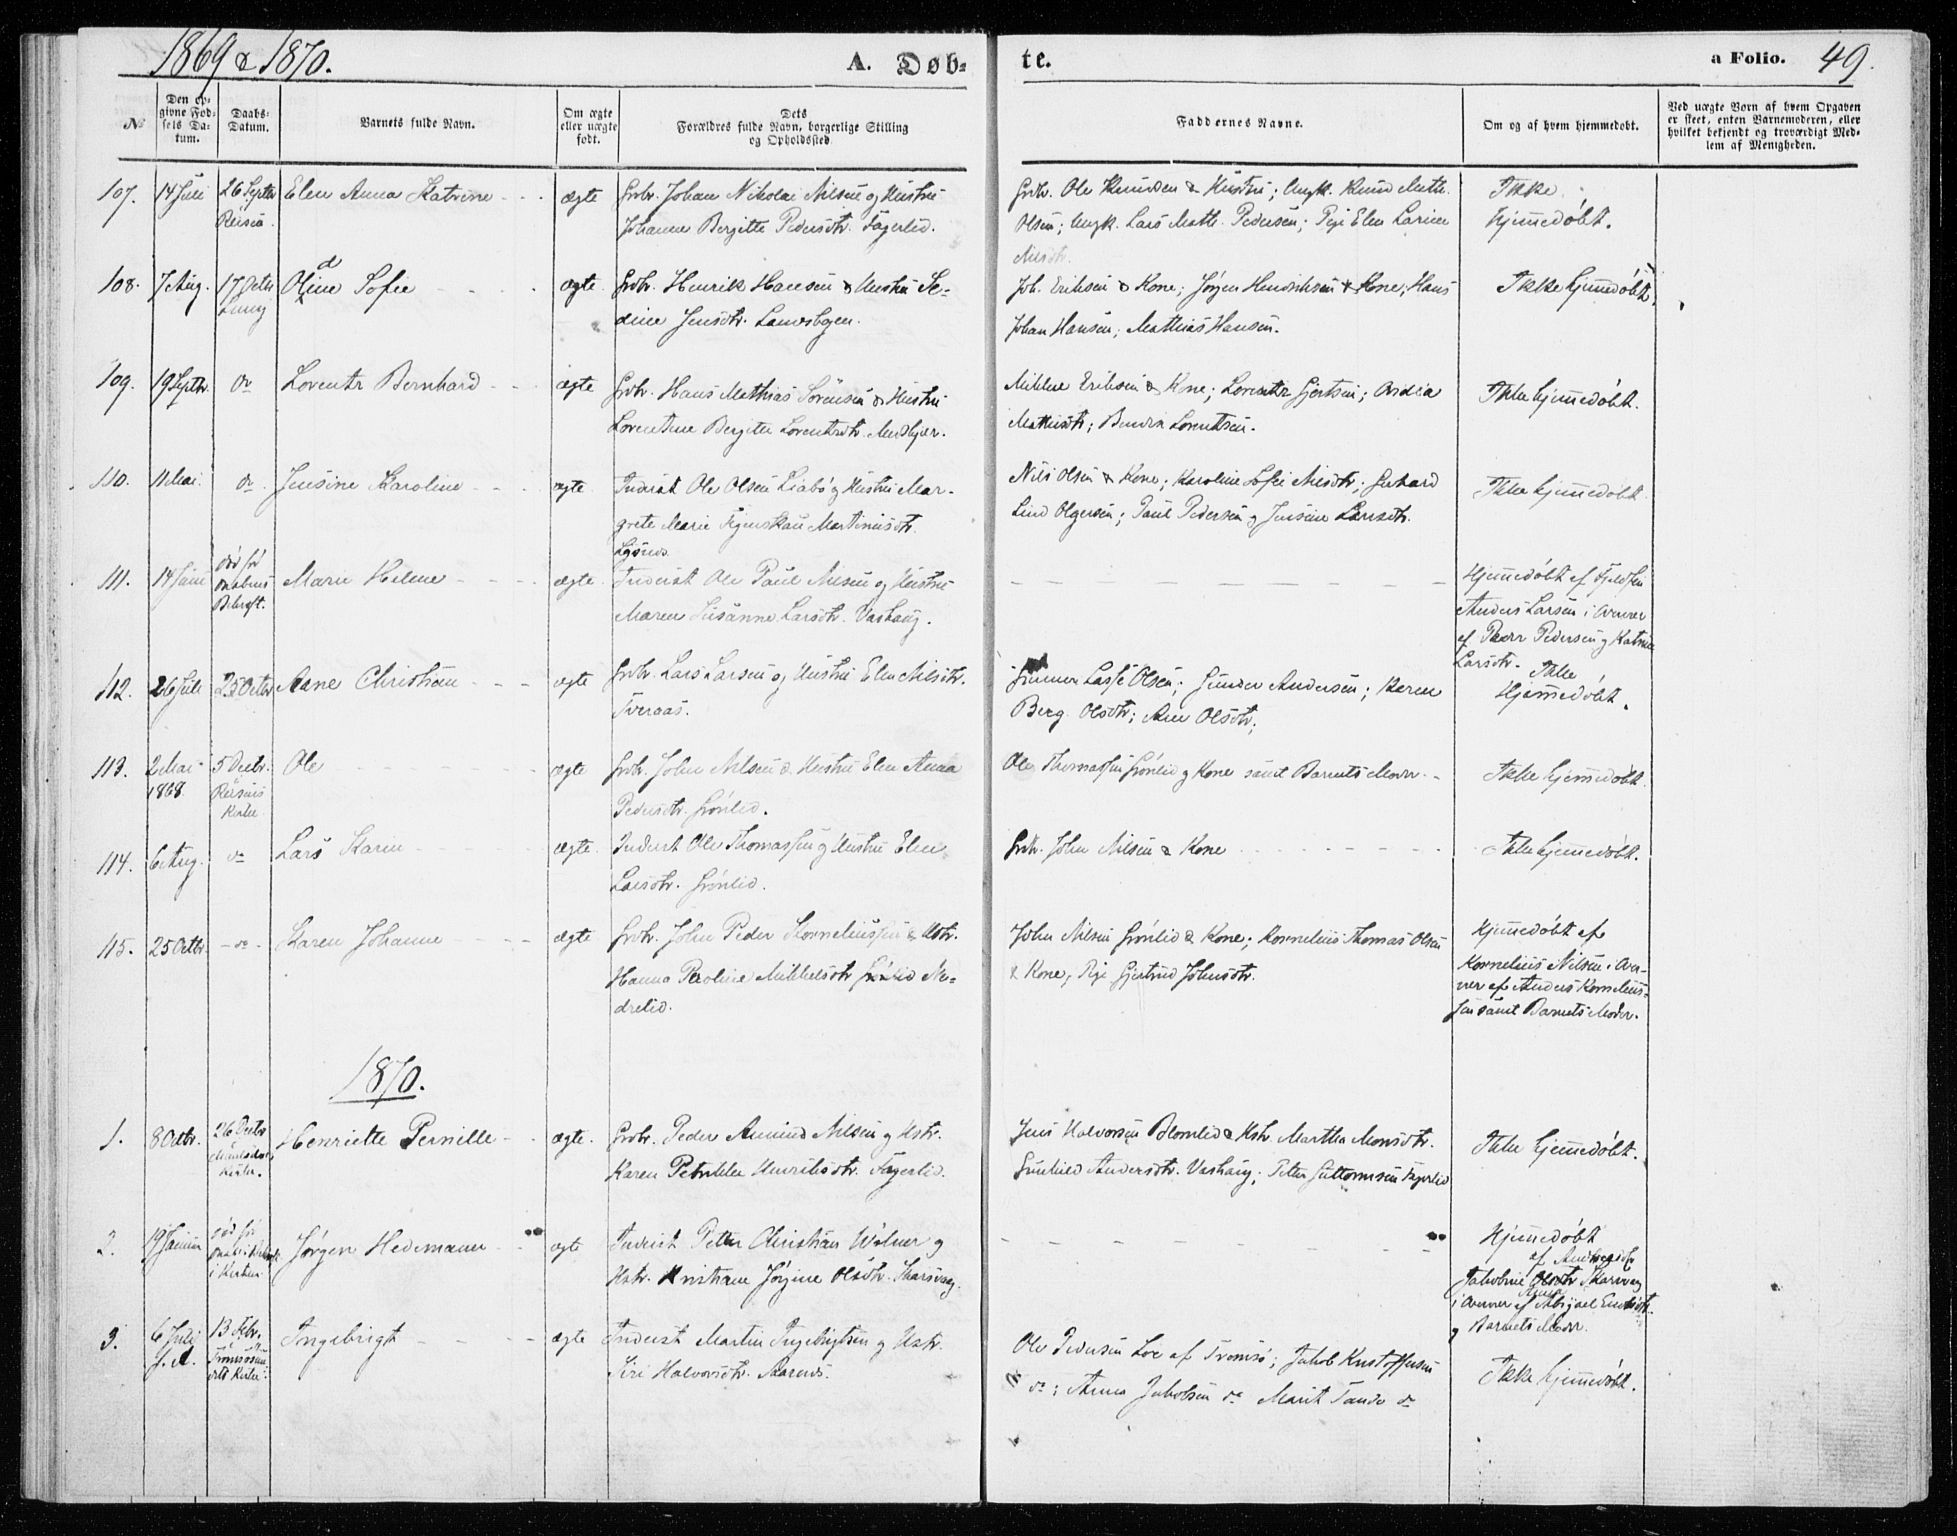 1869 & 1870.
A. Døb-
te.
a Folio. 49.
№
Den op-
givne Fød-
sels Da-
tum.
Daabs-
Datum.
Barnets fulde Navn.
Om ægte
eller uægte
født.
Dets
Forældres fulde Navn, borgerlige Stilling
og Opholdssted.
Faddernes Navne.
Om og af hvem hjemmedøbt.
Ved uægte Børn af hvem Opgaven
er skeet, enten Barnemoderen, eller
hvilket bekjendt og troværdigt Med-
lem af Menigheden.
107. 14 Juli 26 Septbr Elen Anna Katrine ægte Grdbr. Johan Nikolai Nilsen og Hustru
Johanne Bergitte Pedersdtr. Fagerlid.
Grdbr. Ole Knudsen & Hustru; Ungk. Knud Math.
Olsen; Ungk. Lars Math. Pedersen; Pige Elen Larine
Nilsdtr.
Ikke
hjemmedøbt.
108. 7 Aug. 17 Octbr Oline Sofie ægte Grdbr. Henrik Hansen & Hustru
Jensdtr.
Joh. Eriksen & Kone; Jørgen Hendriksen & Kone; Hans
Johan Hansen; Mathias Hansen.
Ikke hjemmedøbt.
109. 19 Septbr. do Lorents Bernhard ægte Grdbr. Hans Mathias Sørensen & Hustru
Lorentine Bergitte Lorentsdtr.
Mikkel Eriksen & Kone; Lorents Gjertsen;
Mathisdtr; Lorentsen.
Ikke hjemmedøbt.
110. 11 Mai do Jensine Karoline ægte Inderst Ole Olsen og Hustru Mar-
grete Marie Martinusdtr.
Nils Olsen & Kone; Karoline Sofie Nilsdtr; Gerhard
Lind Olgersen; Paul Pedersen og Jensine Larsdtr.
Ikke hjemmedøbt
111. 14 Juni død før
Daabens
Bekræft. Maren Helene ægte Inderst Ole Paul Nilsen og Hustru
Maren Susanne Larsdtr. Vashaug.
Hjemmedøbt af
Anders Larsen i Overvær
af Peder Pedersen og Katrine
Larsdtr.
112. 26 Juli 25 Octbr Aane Christian ægte Grdbr. Lars Larsen og Hustru Elen Nilsdtr.
Tveraas.
Lasse Olsen; Gunder Andersen; Karen
Berg. Olsdtr; Ane Olsdtr;
Ikke
Hjemmedøbt.
113. 2 Mai
1868. 5 Decbr.
Kirke Ole ægte Grdbr. John Nilsen & Hustru Elen Anna
Pedersdtr. Grønlid.
Ole Thomassen Grønlid og Kone samt Barnets Moder.
Ikke hjemmedøbt
114. 6 Aug. do Lars Karin ægte Inderst Ole Thomassen og Hustru Elen
Larsdtr. Grønlid.
Grdbr. John Nilsen & Kone
Ikke hjemmedøbt.
115. 25 Octbr do Karen Johanne ægte Grdbr. John Peder Kornelius­sen & Hstr.
Hanna Mikkelsdtr Ne-
drelid.
John Nilsen Grønlid & Kone; Kornelius Thomas Olsen
& Kone; Pige Gjertrud Johnsdtr.
Hjemmedøbt af
Kornelius Nilsen i Over-
vær af Anders Kornelius-
sen samt Barnets Moder.
1870.
1. 8 Octbr. 26 Decbr
Kirke. Henriette Pernille ægte. Grdbr. Peder Amund Nilsen og Hstr.
Karen Petrikke Henriksdtr. Fagerlid.
Jens Halvorsen Blomlid & Hstr. Martha Monsdtr.
Gunhild Andersdtr. Vashaug; Peter Guttormsen Fagerlid
Ikke hjemmedøbt.
2. 19 Januar død før
i Kirken Jørgen Hedemann ægte Inderst Petter Christian Wølner og
Hstr. Kristiane Jørgine Olsdtr.
Hjemmedøbt
af
Jakobine Olsdtr
i Overvær af Abigael
og Barnets Moder.
3. 6 Juli
f. A. 13 Febr.
Tromsøsun-
dets Kirke Ingebrigt ægte Inderst Martin Ingebrigtsen og Hstr.
Siri Halvorsdtr. Aarnes.
Ole Pedersen Loe af Tromsø; Jakob Kristoffersen
do; Anna Jakobsen do Marit Tande do
Ikke hjemmedøbt.